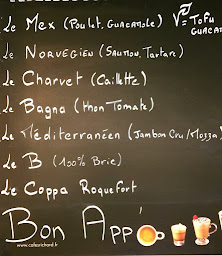 Le Mex (Poulet, Guacamole) V = Tofu
Guacam
Le Norvegien (Saumon, Tartare)
Le Charvet (Caillette)
Le Bagna (thon Tomate)
Le Méditerranéen (Jambon Cru/Mozza)
Le B (100% Brie)
Le Coppa Roquefort
Bon App'
www.cafesrichard.fr